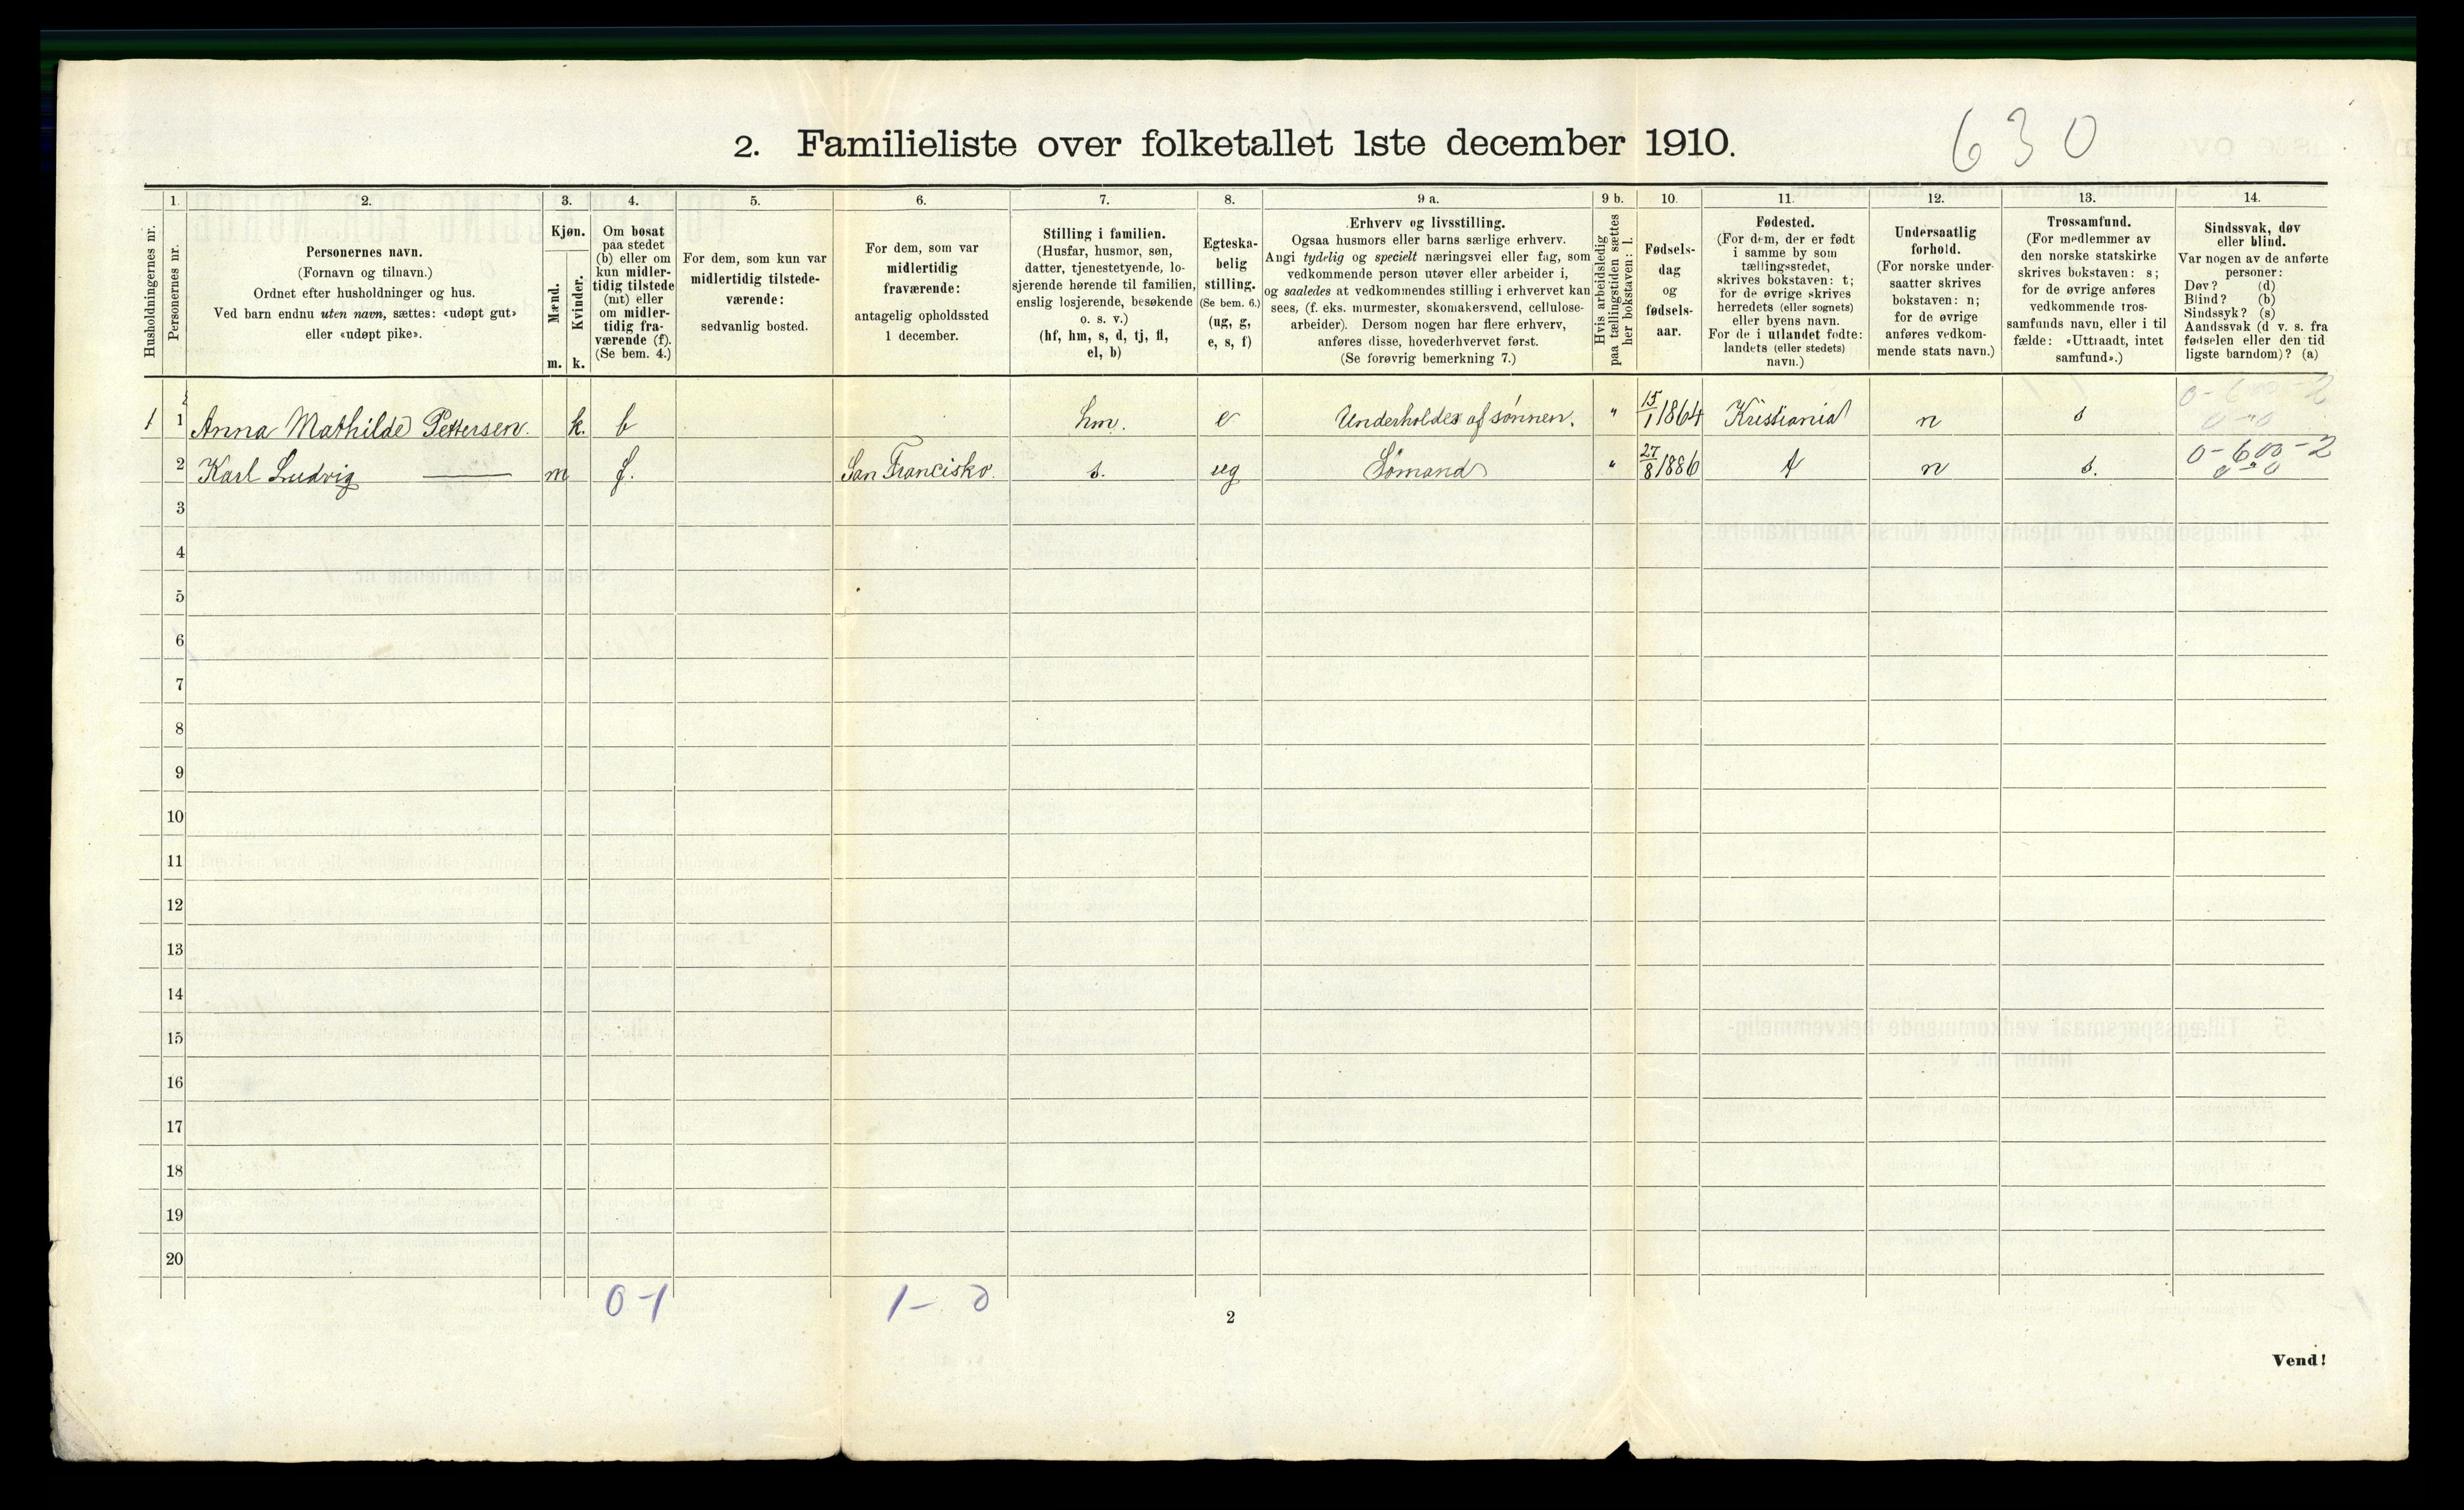 630
2. Familieliste over folketallet 1ste december 1910.
Husholdningernes nr.
1.
Personernes nr.
2.
Personernes navn.
(Fornavn og tilnavn.)
Ordnet efter husholdninger og hus.
Ved barn endnu uten navn, sættes: «udøpt gut»
eller «udøpt pike».
3.
Kjøn.
Mænd.
m.
Kvinder.
k.
4.
Om bosat
paa stedet
(b) eller om
kun midler-
tidig tilstede
(mt) eller
om midler-
tidig fra-
værende (f).
(Se bem. 4.)
5.
For dem, som kun var
midlertidig tilstede-
værende:
sedvanlig bosted.
6.
For dem, som var
midlertidig
fraværende:
antagelig opholdssted
1 december.
7.
Stilling i familien.
(Husfar, husmor, søn,
datter, tjenestetyende, lo-
sjerende hørende til familien,
enslig losjerende, besøkende
o. s. v.)
(hf, hm, s, d, tj, fl,
el, b)
8.
Egteska-
belig
stilling.
(Se bem. 6.)
(ug, g,
e, s, f)
9 a.
Erhverv og livsstilling.
Ogsaa husmors eller barns særlige erhverv.
Angi tydelig og specielt næringsvei eller fag, som
vedkommende person utøver eller arbeider i,
og saaledes at vedkommendes stilling i erhvervet kan
sees, (f. eks. murmester, skomakersvend, cellulose-
arbeider). Dersom nogen har flere erhverv,
anføres disse, hovederhvervet først.
(Se forøvrig bemerkning 7.)
9 b.
Hvis arbeidsledig
paa tællingstiden sættes
her bokstaven: l.
10.
Fødsels-
dag
og
fødsels-
aar.
11.
Fødested.
(For dem, der er født
i samme by som
tællingsstedet,
skrives bokstaven: t;
for de øvrige skrives
herredets (eller sognets)
eller byens navn.
For de i utlandet fødte:
landets (eller stedets)
navn.)
12.
Undersaatlig
forhold.
(For norske under-
saatter skrives
bokstaven: n;
for de øvrige
anføres vedkom-
mende stats navn.)
13.
Trossamfund.
(For medlemmer av
den norske statskirke
skrives bokstaven: s;
for de øvrige anføres
vedkommende tros-
samfunds navn, eller i til
fælde: «Uttraadt, intet
samfund».)
14.
Sindssvak, døv
eller blind.
Var nogen av de anførte
personer:
Døv? (d)
Blind? (b)
Sindssyk? (s)
Aandssvak (d v. s. fra
fødselen eller den tid
ligste barndom)? (a)
1 1 Anna Mathilde Pettersen. k. b hm. e Underholdes af sønnen. " 15/1 1864 Kristiania n s
2 Karl Ludvig —— m f. San Francisko. s. ug Sømand " 27/8 1886 t n s.
3
4
5
6
7
8
9
10
11
12
13
14
15
16
17
18
19
20
0-1 1-0
2
Vend!